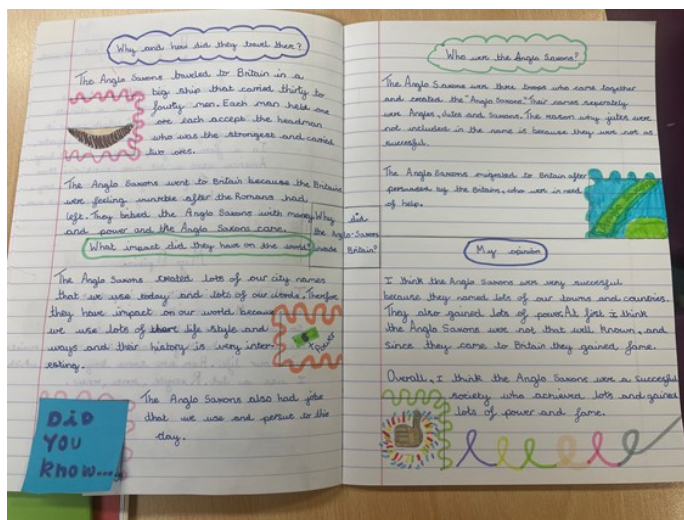 Why and how did they travel there?
The Anglo Saxons traveled to Britain in a
big ship that carried thirty to
fourty men. Each man held one
ore each accept the headman
who was the strongest and carried
two ores.
The Anglo Saxons went to Britain because the Britains
were feeling unsafe after the Romans had
left. They bribed the Anglo Saxons with money
and power and the Anglo Saxons came.
Why did
the Anglo-Saxons
invade Britain?
What impact did they have on the world?
The Anglo Saxons created lots of our city names
that we use today and lots of our words. Therefore
they have impact on our world because
we use lots of there life style and
ways and their history is very inter-
esting.
+ Power
The Anglo Saxons also had jobs
that we use and persue to this
day.
DiD
YOU
know...
Who were the Anglo Saxons?
The Anglo Saxons were three troops who came together
and created the "Anglo Saxons". Their names seperately
were Angles, Jutes and Saxons. The reason why jutes were
not included in the name is because they were not as
succesful.
The Anglo Saxons migrated to Britain after
persuaded by the Britain, who were in need
of help.
My opinion
I think the Anglo Saxons were very successful
because they named lots of our towns and countries.
They also gained lots of power. At first I think
the Anglo Saxons were not that well known, and
since they came to Britain they gained fame.
Overall, I think the Anglo Saxons were a succesful
society who achieved lots and gained
lots of power and fame.